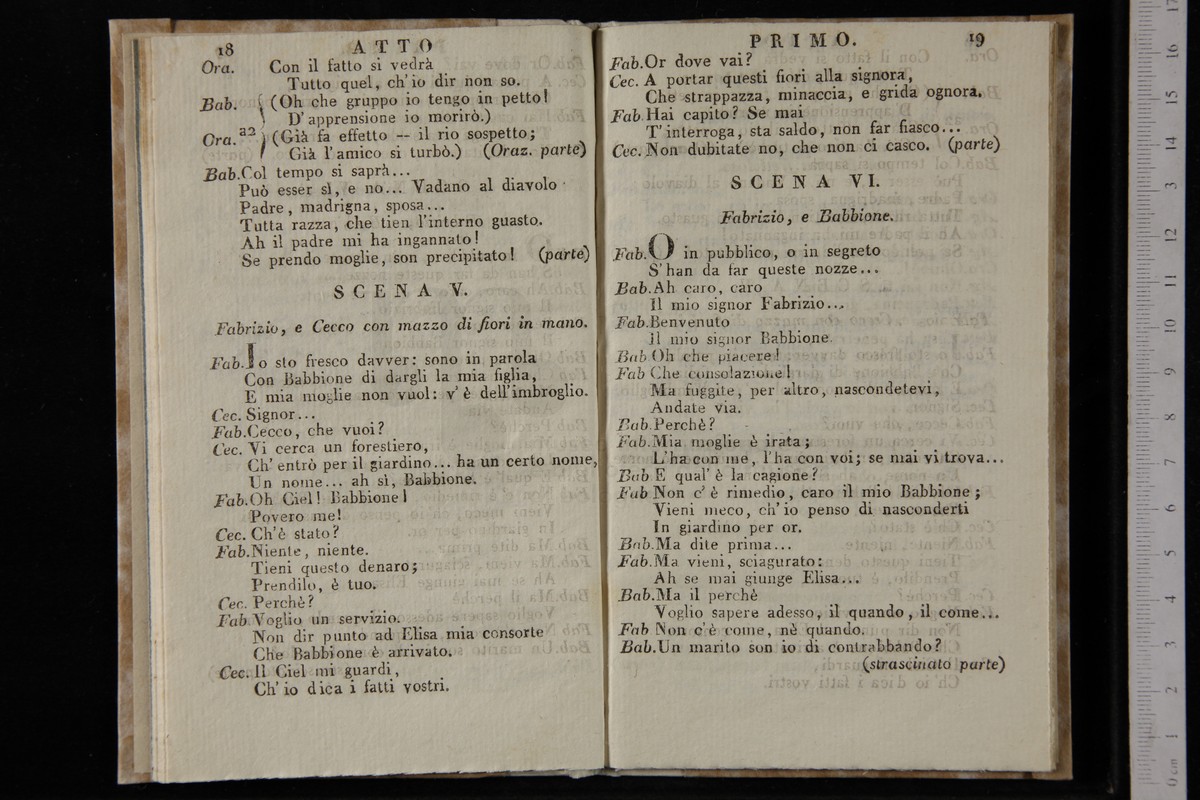 18 ATTO
Ora. Con il fatto si vedrà
Tutto quel, ch'io dir non so.
Bab. (Oh che gruppo io tengo in petto!
D'apprensione io morirò.)
Ora. a2 (Già fa effetto — il rio sospetto;
Già l'amico si turbò.) (Oraz. parte)
Bab. Col tempo si saprà...
Può esser sì, e no... Vadano al diavolo
Padre, madrigna, sposa...
Tutta razza, che tien l'interno guasto.
Ah il padre mi ha ingannato!
Se prendo moglie, son precipitato! (parte)
SCENA V.
Fabrizio, e Cecco con mazzo di fiori in mano.
Fab. Io sto fresco davver: sono in parola
Con Babbione di dargli la mia figlia,
E mia moglie non vuol: v'è dell'imbroglio.
Cec. Signor...
Fab. Cecco, che vuoi?
Cec. Vi cerca un forestiero,
Ch'entrò per il giardino... ha un certo nome,
Un nome... ah sì, Babbione.
Fab. Oh Ciel! Babbione!
Povero me!
Cec. Ch'è stato?
Fab. Niente, niente.
Tieni questo denaro;
Prendilo, è tuo.
Cec. Perchè?
Fab Voglio un servizio.
Non dir punto ad Elisa mia consorte
Che Babbione è arrivato.
Cec. Il Ciel mi guardi,
Ch'io dica i fatti vostri.
PRIMO. 19
Fab. Or dove vai?
Cec. A portar questi fiori alla signora,
Che strappazza, minaccia, e grida ognora.
Fab Hai capito? Se mai
T'interroga, sta saldo, non far fiasco...
Cec. Non dubitate no, che non ci casco. (parte)
SCENA VI.
Fabrizio, e Babbione.
Fab. O in pubblico, o in segreto
S'han da far queste nozze...
Bab. Ah caro, caro
Il mio signor Fabrizio...
Fab. Benvenuto
Il mio signor Babbione.
Bab Oh che piacere!
Fab Che consolazione!
Ma fuggite, per altro, nascondetevi,
Andate via.
Bab. Perchè?
Fab. Mia moglie è irata;
L'ha con me, l'ha con voi; se mai vi trova...
Bab E qual' è la cagione?
Fab Non c'è rimedio, caro il mio Babbione;
Vieni meco, ch'io penso di nasconderti
In giardino per or.
Bab. Ma dite prima...
Fab. Ma vieni, sciagurato:
Ah se mai giunge Elisa...
Bab. Ma il perchè
Voglio sapere adesso, il quando, il come...
Fab Non c'è come, nè quando.
Bab. Un marito son io di contrabbando?
(strascinato parte)
0 cm 1 2 3 4 5 6 7 8 9 10 11 12 13 14 15 16 17